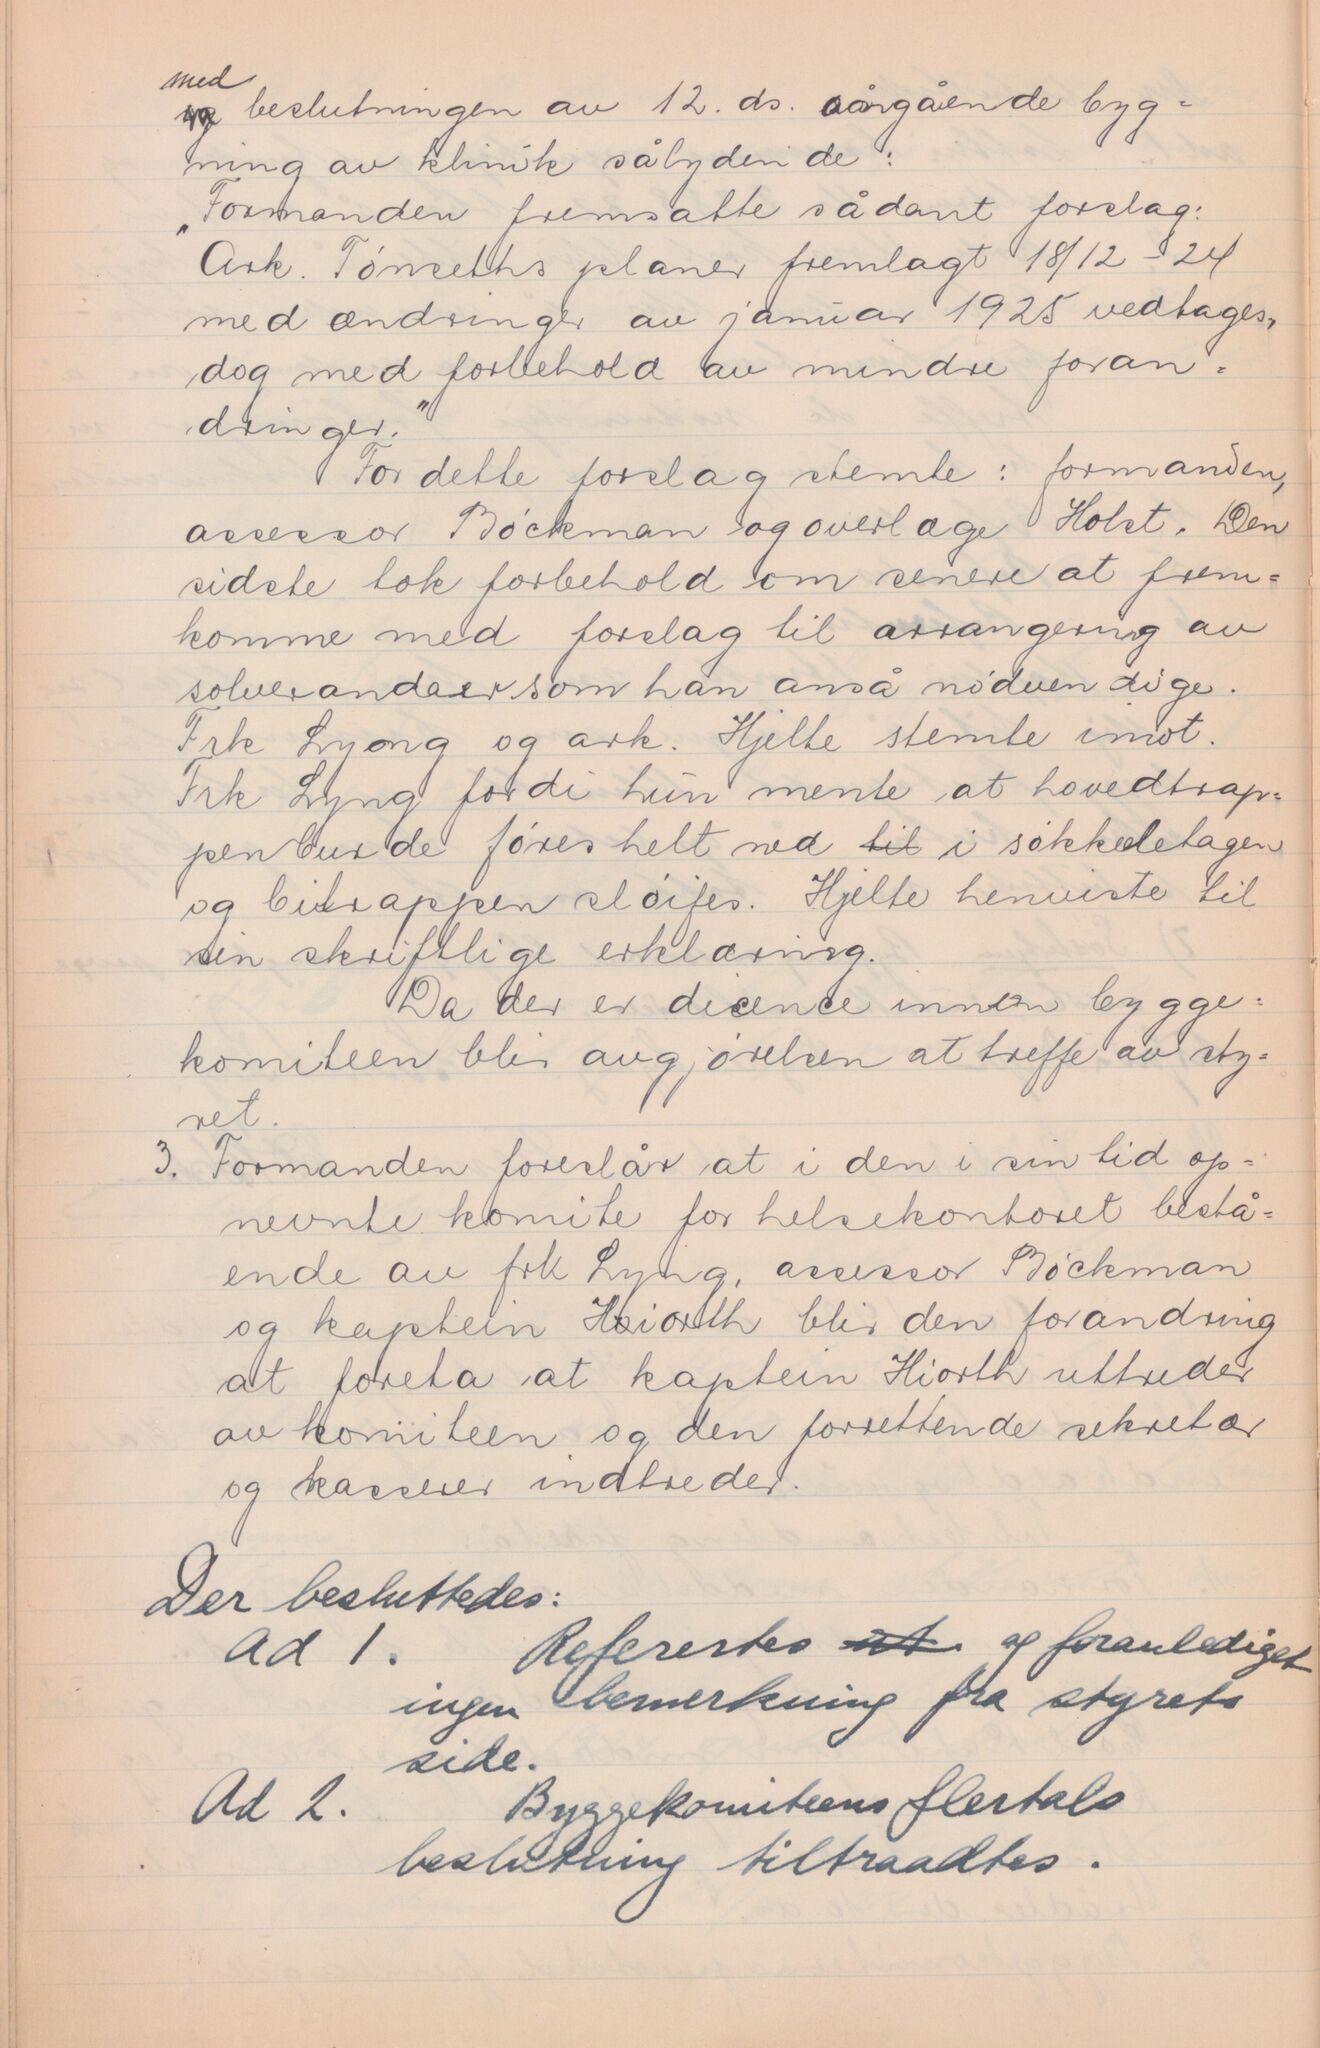 med
beslutningen av 12. ds. angående byg-
ning av klinik sålydende:
"Formanden fremsatte sådant forslag:
Ark. Tónseths planer fremlagt 18/12 - 24
med ændringer av januar 1925 vedtages,
dog med forbehold av mindre foran-
dringer."
For dette forslag stemte: formanden,
assessor Bóckman og overlæge Holst. Den
sidste tok forbehold om senere at frem-
komme med forslag til arrangering av
solverandaer som han anså nódvendige.
Frk Lyng og ark. Hjelte stemte imot.
Frk Lyng fordi hun mente at hovedtrap-
pen burde fóres helt ned til i sokkeletagen
og bitrappen slóifes. Hjelte henviste til
sin skriftlige erklæring.
Da der er dicence innen bygge-
komiteen blir avgjórelsen at treffe av sty-
ret.
3. Formanden foreslår at i den i sin tid op-
nevnte komite for helsekontoret bestå-
ende av frk Lyng, assessor Bóckman
og kaptein Hiorth blir den forandring
at foreta at kaptein Hiorth uttreder
av komiteen og den forrettende sekretær
og kasserer indtreder.
Der besluttedes:
Ad 1. Referertes at og foranlediget
ingen bemerkning fra styrets
side.
Ad 2. Byggekomiteens flertals
beslutning tiltraadtes.